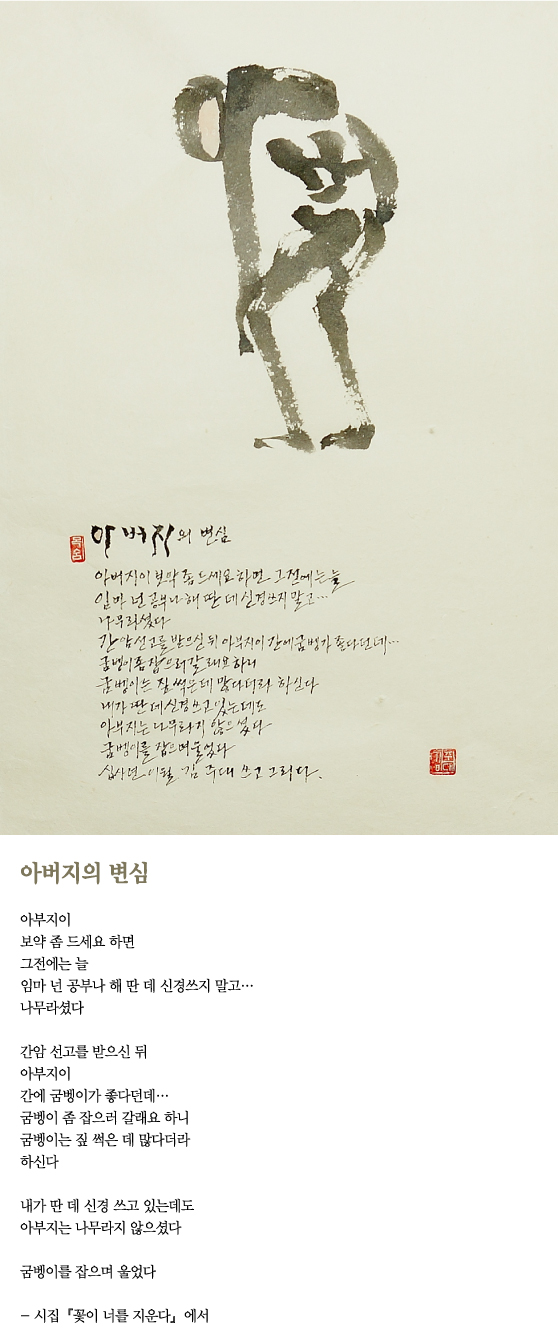 아버지의 변심
아버지이 보약 좀 드세요 하면 그전에는 늘
임마 넌 공부나 해 딴 데 신경쓰지 말고…
나무라셨다
간암 선고를 받으신 뒤 아부지이 간에 굼벵이가 좋다던데…
굼벵이 좀 잡으러 갈래요 하니
굼벵이는 짚 썩은 데 많다더라 하신다
내가 딴 데 신경 쓰고 있는데도
아부지는 나무라지 않으셨다
굼벵이를 잡으며 울었다
십사년 이월 김주대 쓰고 그리다.
아버지의 변심
아부지이
보약 좀 드세요 하면
그전에는 늘
임마 넌 공부나 해 딴 데 신경쓰지 말고…
나무라셨다
간암 선고를 받으신 뒤
아부지이
간에 굼벵이가 좋다던데…
굼벵이 좀 잡으러 갈래요 하니
굼벵이는 짚 썩은 데 많다더라
하신다
내가 딴 데 신경 쓰고 있는데도
아부지는 나무라지 않으셨다
굼벵이를 잡으며 울었다
– 시집『꽃이 너를 지운다』에서